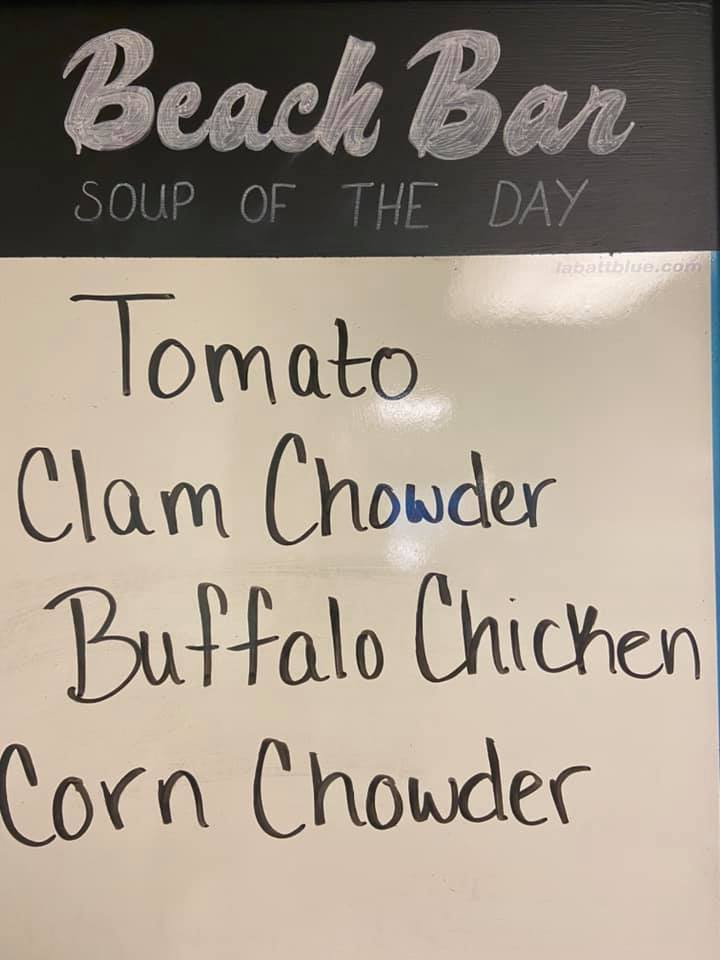 Beach Bar
SOUP OF THE DAY
labattblue.com
Tomato
Clam Chowder
Buffalo Chicken
Corn Chowder